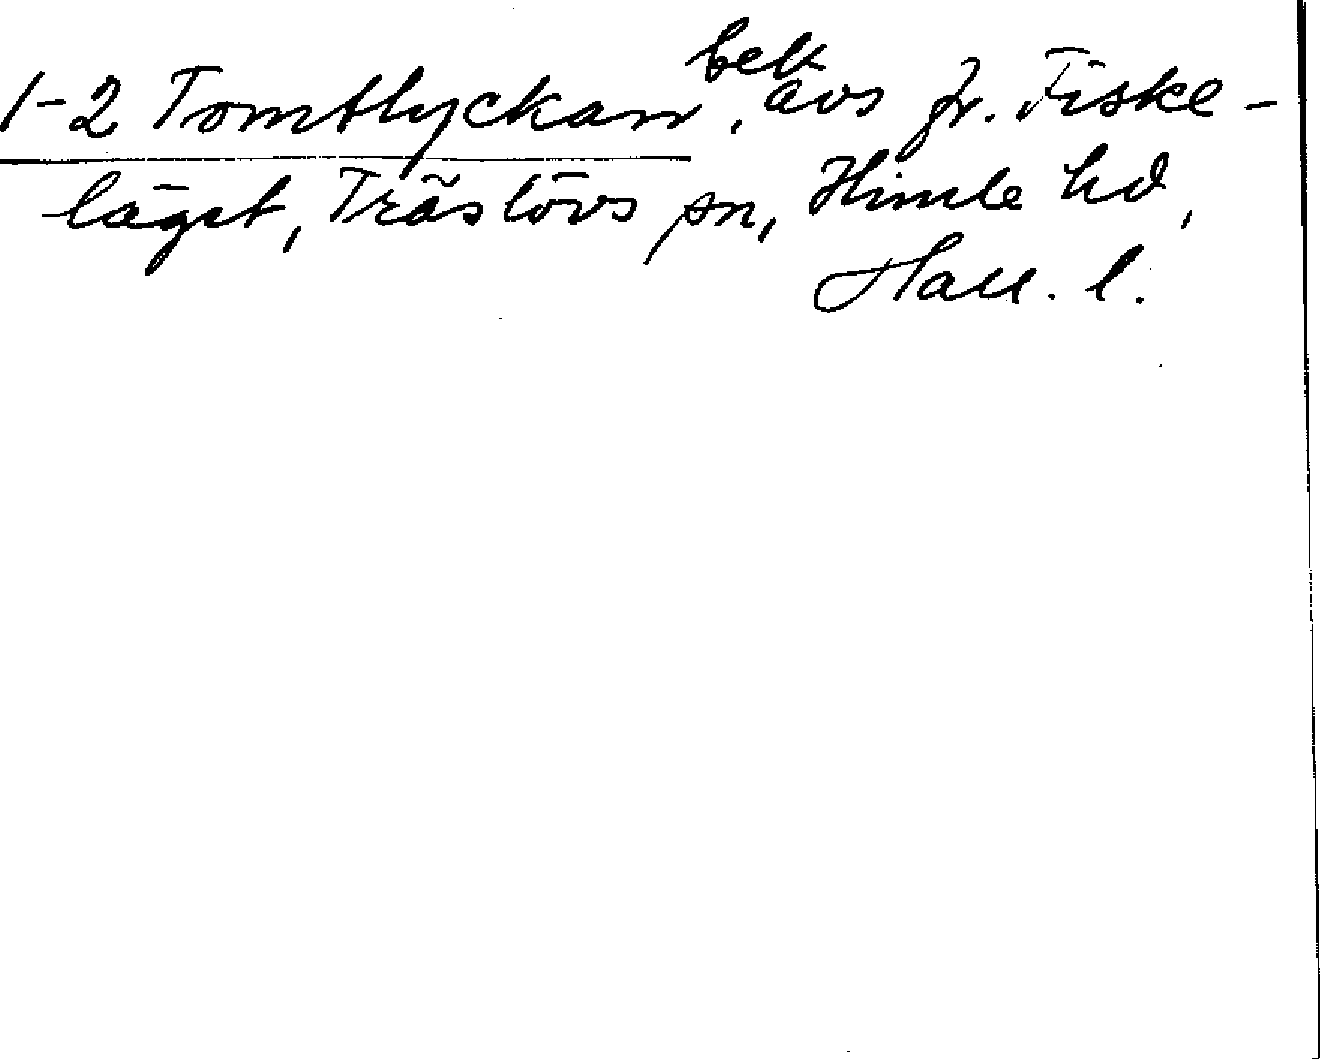 1-2 Tomtlyckan, bek avs fr. Fiske-
läget, Träslövs sn, Himle hd,
Hall. l.